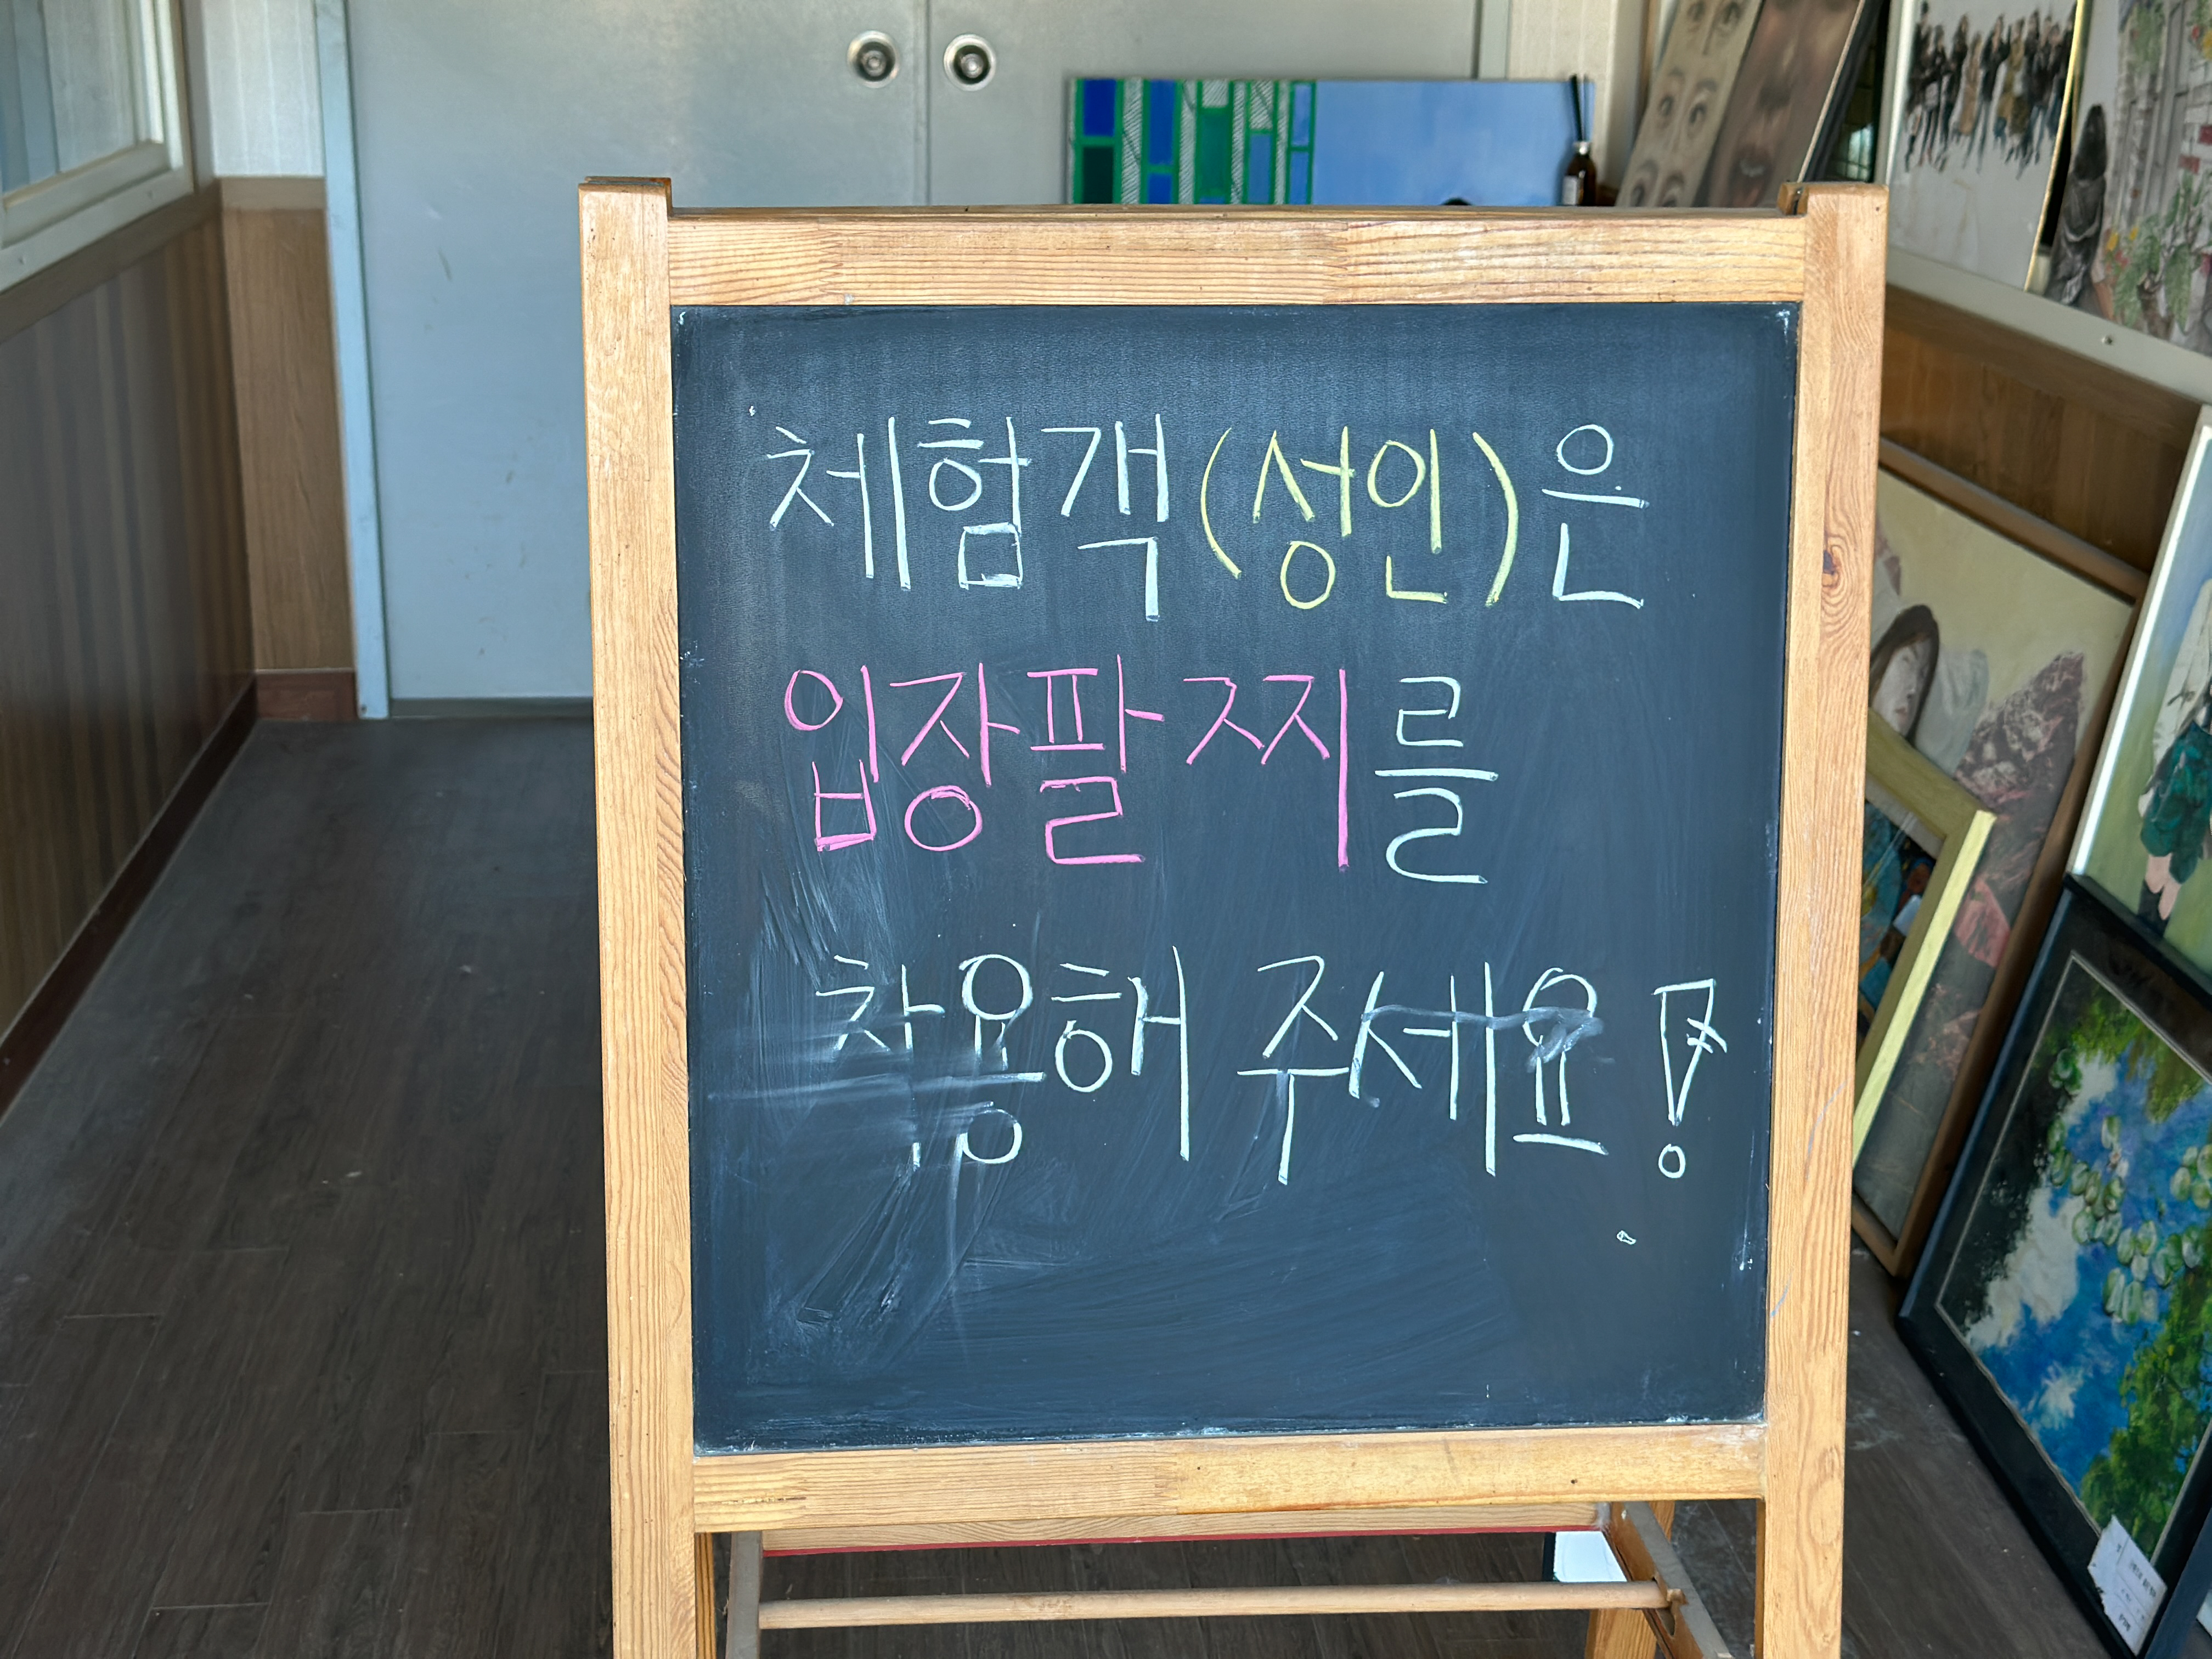 체험객(성인)은
입장팔찌를
착용해 주세요!